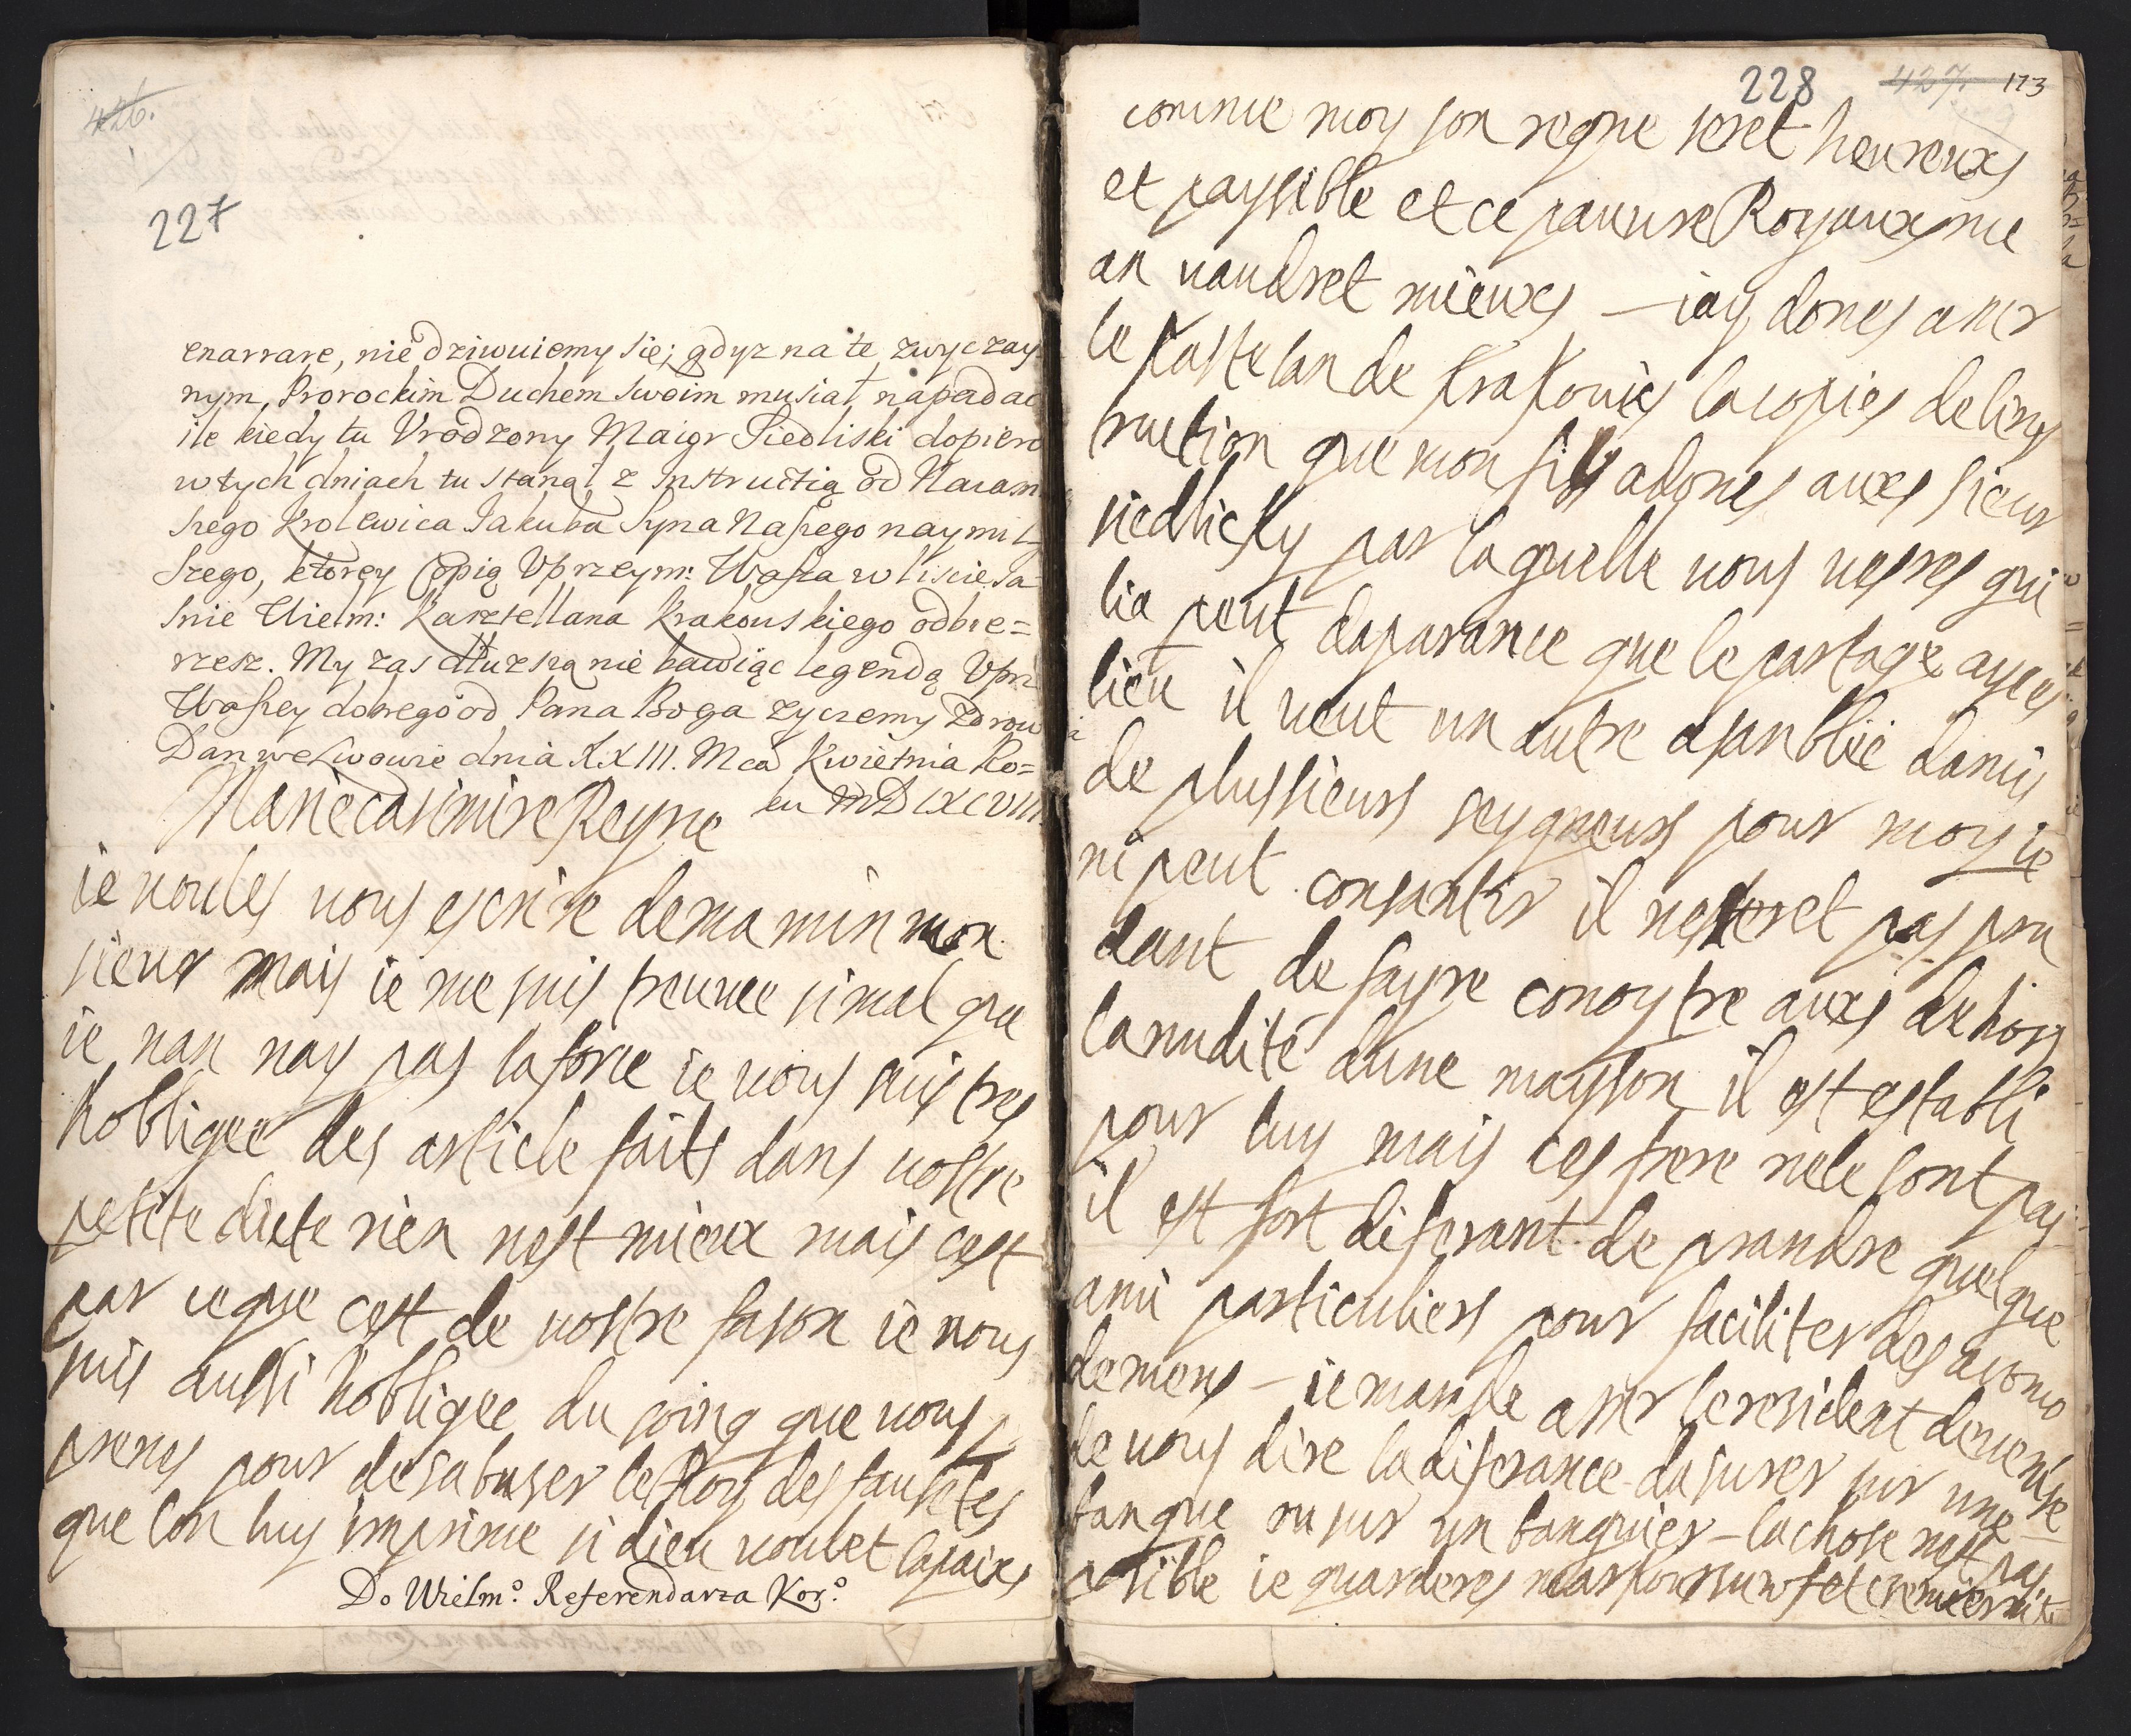 426.
227
enarrare, nie dziwuiemy się; gdyz na te zwyczay
nym, Prorockim Duchem swoim musiał napadac
ile kiedy tu Vrodzony Maior Siedliski dopiero
w tych dniach tu stanął z Instructią od Naiasn
szego Krolewica Jakuba Syna Naszego naymil
szego, ktorey Copią Vprzeym: Wasza w liscie Ja
snie Wielm: Kasztellana Krakowskiego odbie=
rzesz. My zas dłuzszą nie bawiąc legendą Vprz
Waszey dobrego od Pana Boga zyczemy Zdrow
Dan we Lwowie dnia XXIII. Mca Kwietnia Ro=
ku MDCXCVIII
Marie casimire Reyne
ie voules vous escrire de ma min mon
sieur mais ie me suis treuuee si mal que
ie nan nay pas la force ie vous suis tres
hobligee des article faits dans vostre
petite diete rien nest mieux mais cest
par ce que cest de vostre fason ie vous
suis aussi hobligee du soing que vous
prenes pour desabuser le Roy des fausetes
que lon luy imprime si dieu voulet la paix
Do Wielm° Referendarza Kor°
228 427. 113
comme moy son regne seret heureux
et paysible et ce pauure Royauxme
an vaudret mieux — iay dones a mr
le Kastelan de Krakouie la copies de lins
truction que mon fils a dones aux sieur
siedlicky par laquelle vous veres qui
lia peut daparance que le partage ayes
lieu il veut un autre asanblie damis
de plussieurs seygneurs pour moy ie
ni peut consantir il ne seret pas pru
dant de fayre conoytre aux dehors
la nudité dune mayson il est establi
pour luy mais ces frere ne le sont pas
il est fort diferant de prandre quelque
ami particuliers pour faciliter des acomo
demens — ie mande a mr le resident de venise
de vous dire la diferance dasurer sur une
banque ou sur un banquier — la chose nest pas
posible ie guarderes